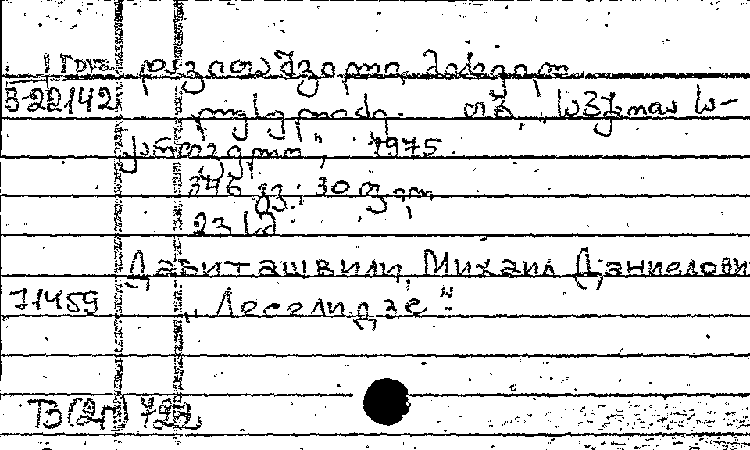 დავითაშვილი, მიხეილ
3-22142
ლესელიძე. თბ., „საბჭოთა სა-
ქართველო", 1975.
346 გვ.; 30 ილ.
23 სმ.
Давиташвили, Михаил Даниелович
71459 „Леселидзе".
T3(2Г) 722